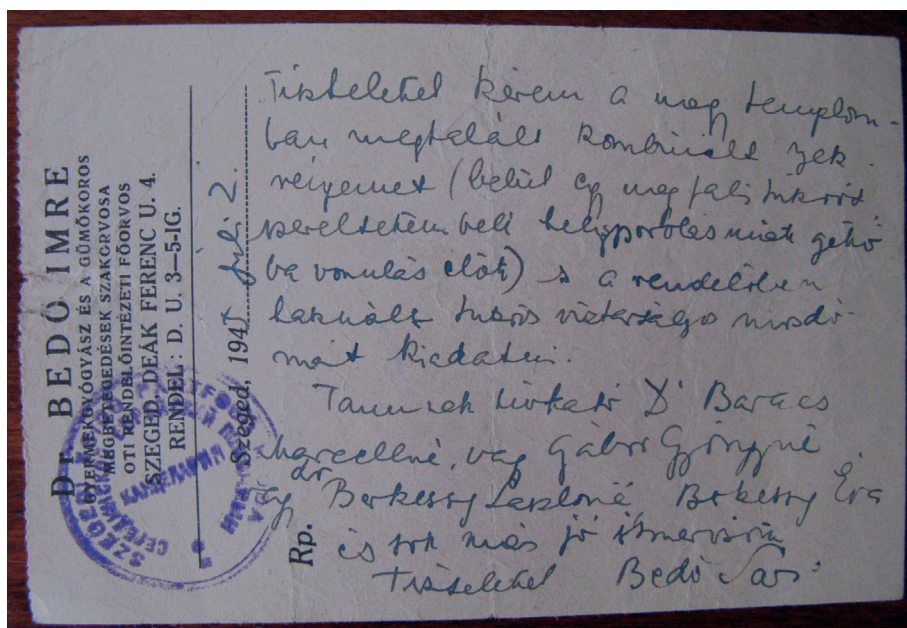 Dr. BEDŐ IMRE
GYERMEKGYÓGYÁSZ ÉS A GÜMŐKOROS
MEGBETEGEDÉSEK SZAKORVOSA
OTI RENDELŐINTÉZETI FŐORVOS
SZEGED, DEÁK FERENC U. 4.
RENDEL: D. U. 3—5-IG.
Szeged, 1945 juli 2.
Rp.
Tisztelettel kérem a nagy templom-
ban megtalált kombinált szek
rényemet (belül egy nagy fali tükröt
szereltetem belé helyspórolás miatt gettó
ba vonulás előtt) s a rendelőben
használt tükrös mosdó-
mat kiadatni.
Tanunak Dr Baracs
Marcellné, vagy Gábor Györgyné
Dr Berkessy Lászlóné Berkessy Éva
és sok más jó ismerősöm
Tisztelettel Bedő Sári